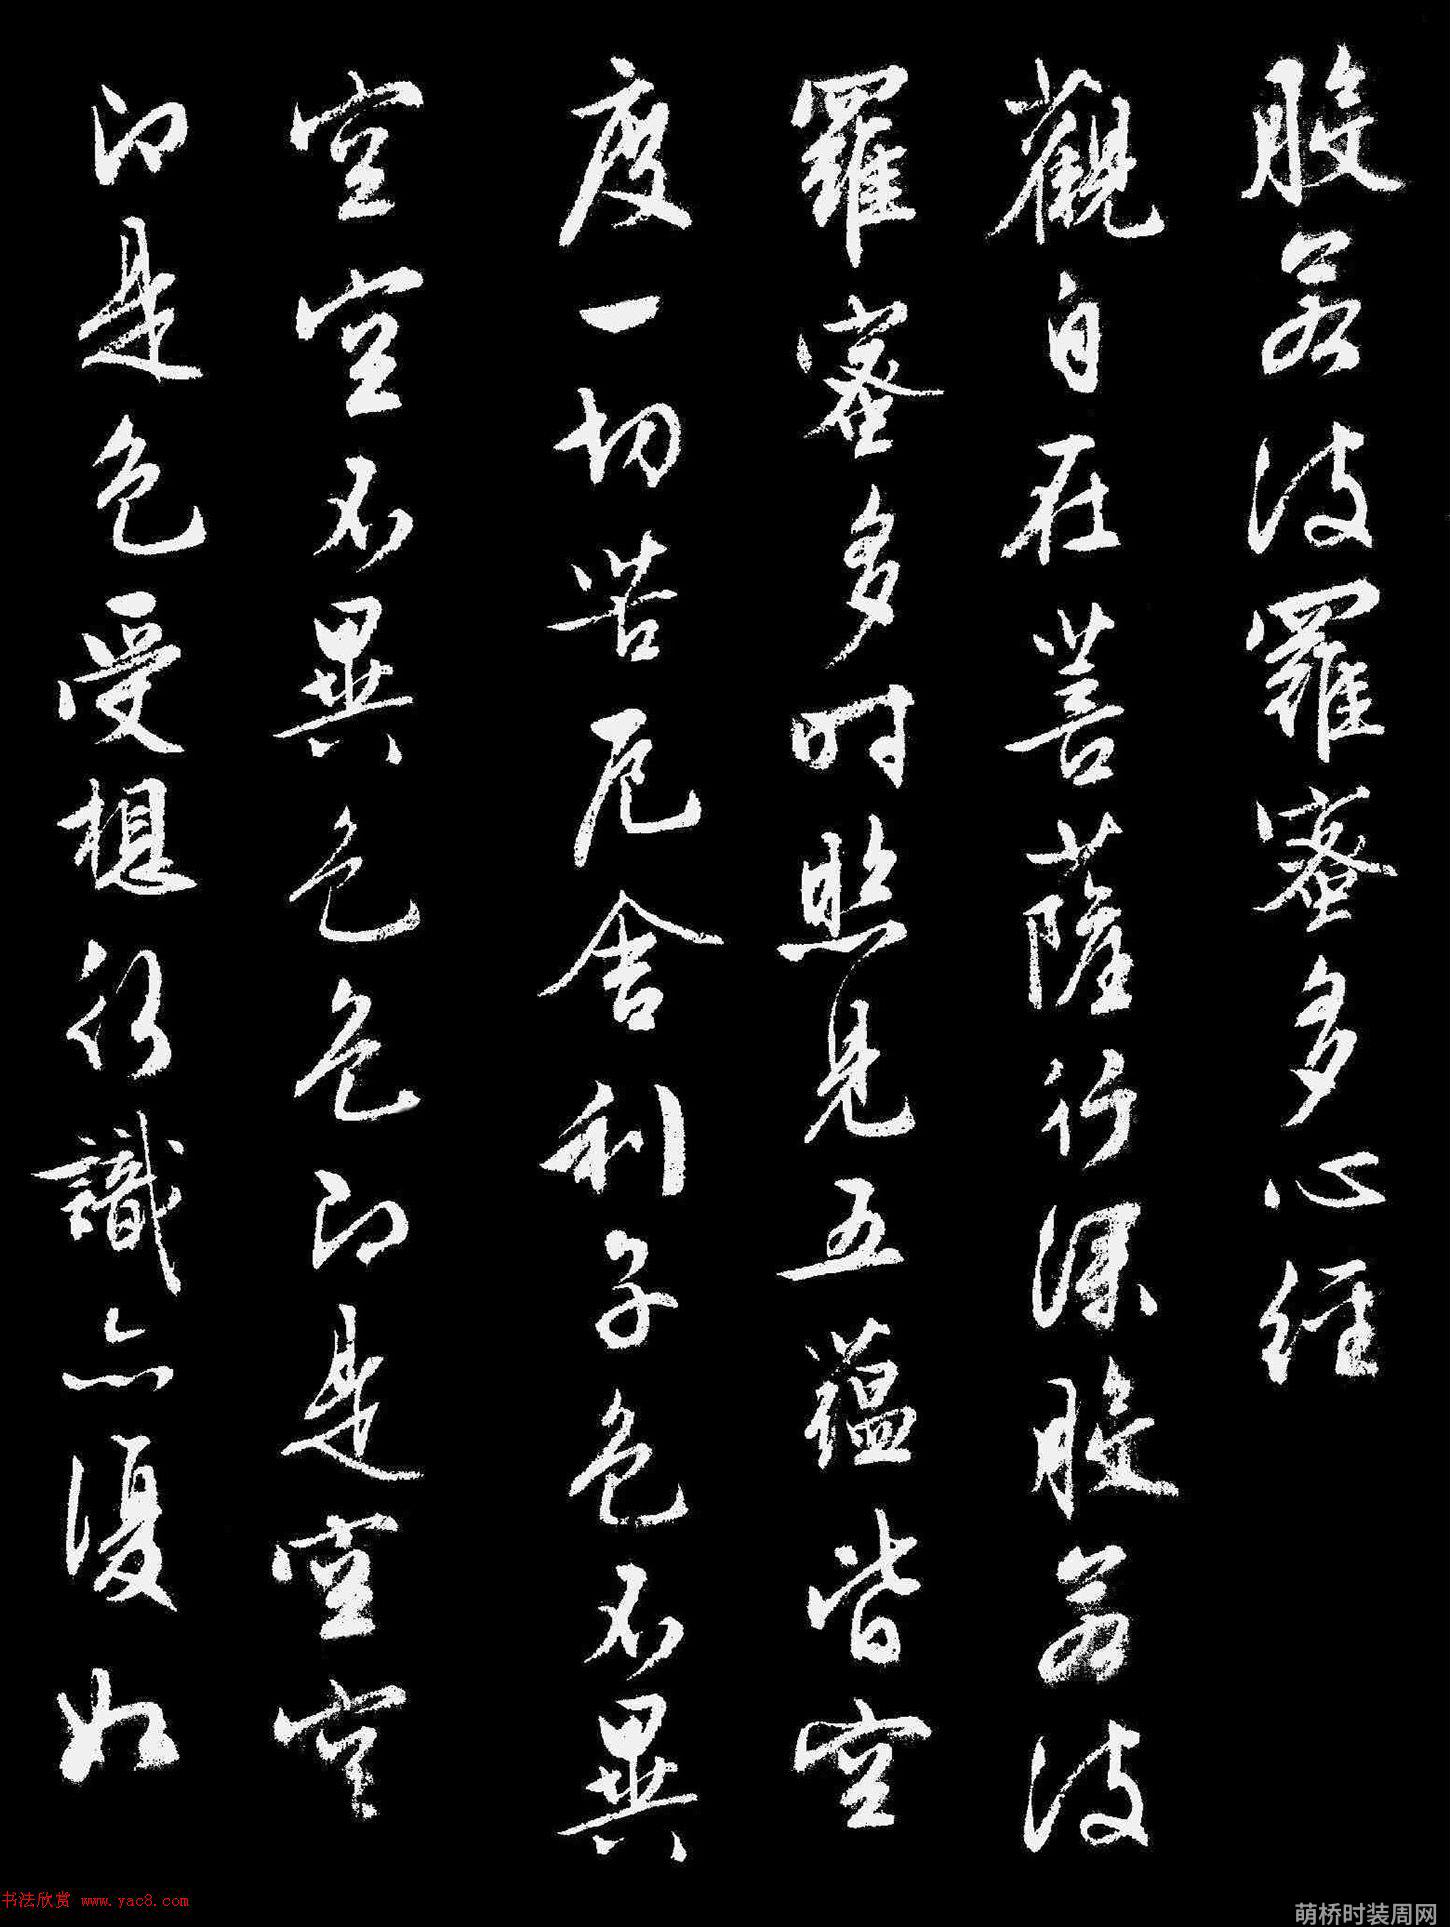 般若波羅蜜多心經
觀自在菩薩行深般若波
羅蜜多時照見五蘊皆空
度一切苦厄舍利子色不異
空空不異色色即是空空
即是色受想行識亦復如
书法欣赏 www.yac8.com
萌桥时装周网